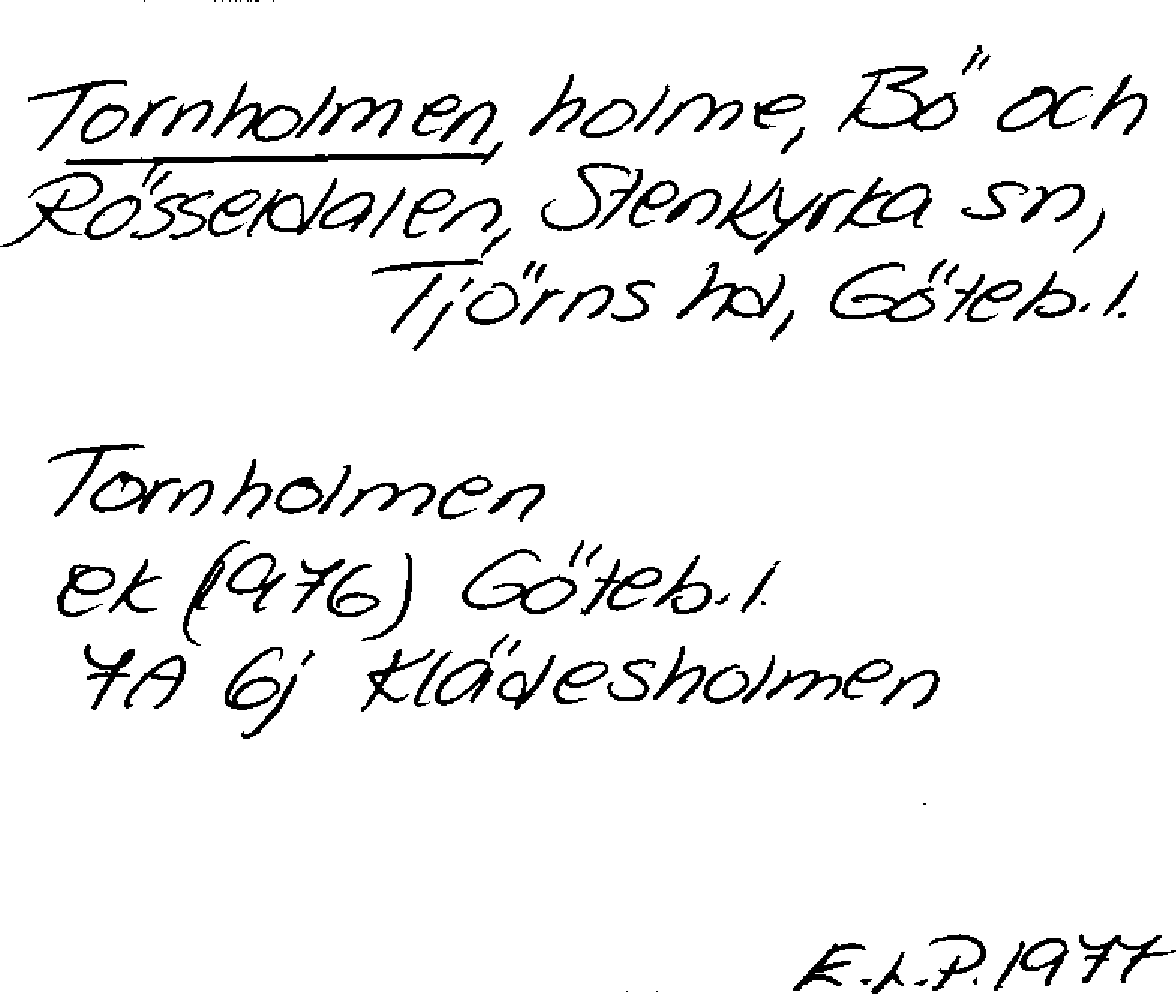 Tornholmen, holme, Bö och
Rösseldalen, Stenkyrka sn,
Tjörns hd, Göteb. l.
Tornholmen
ek (1976) Göteb. l.
7A 6j Klädesholmen
E.L.P. 1977